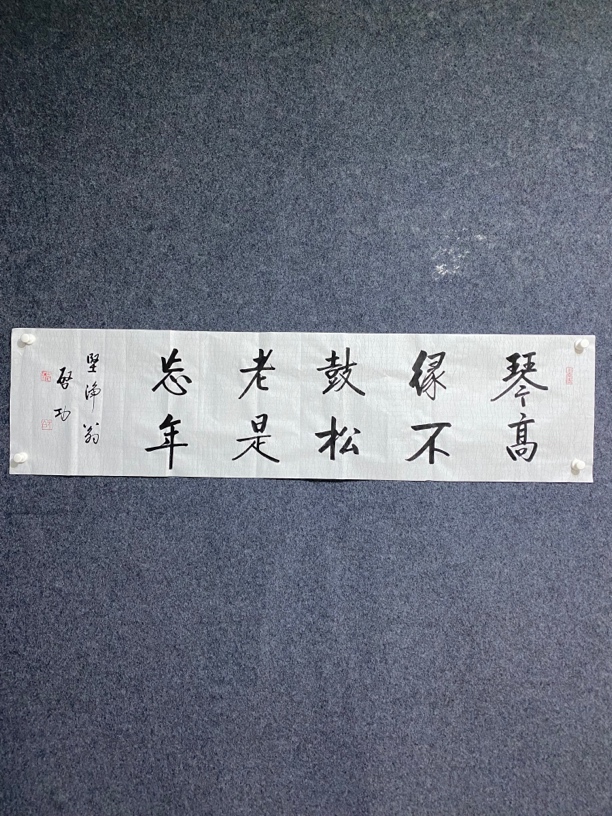 琴高
缘不
鼓松
老是
忘年
坚净翁
启功